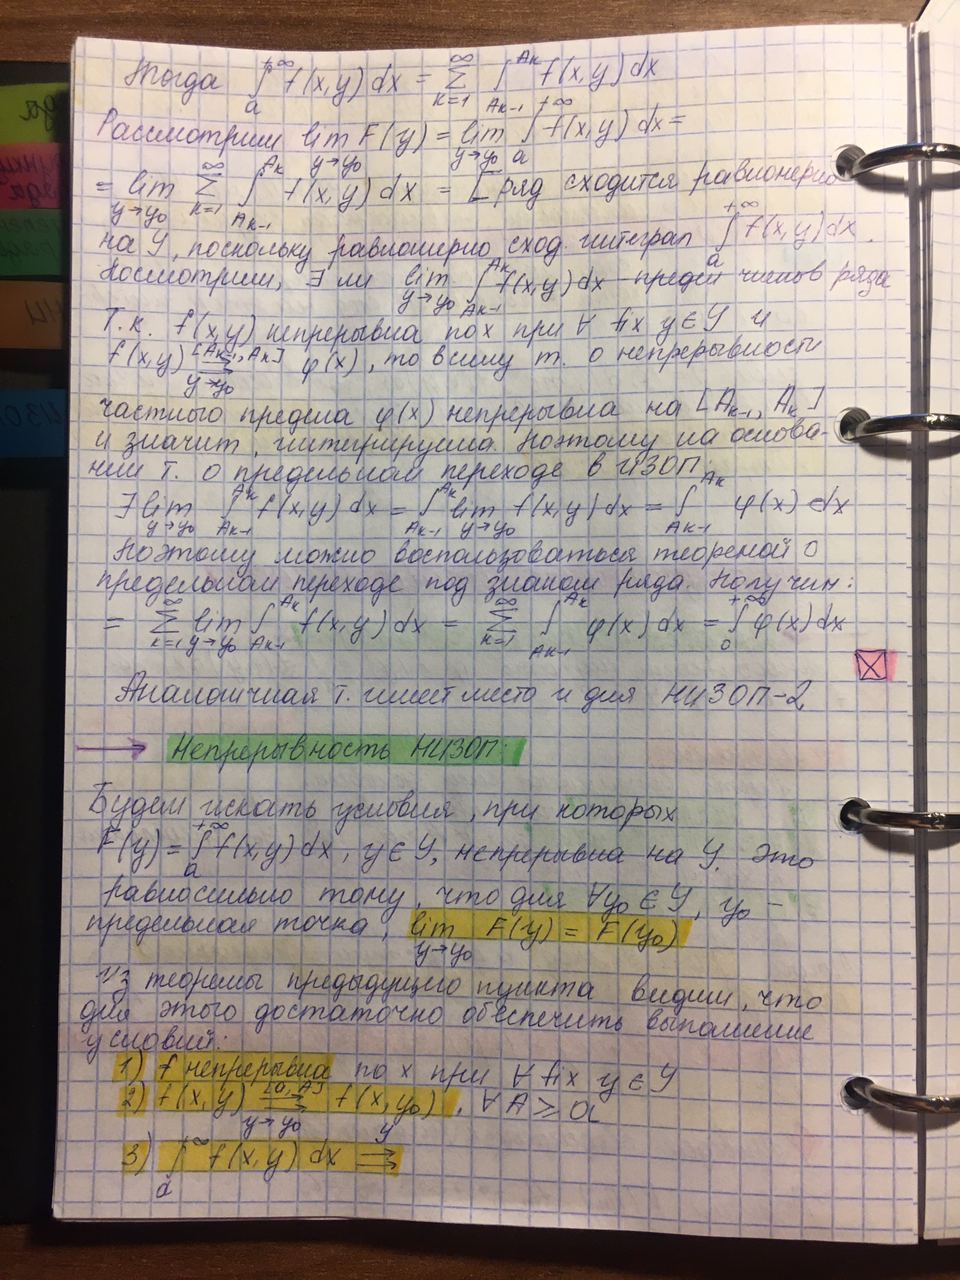 Тогда ∫ₐ^{+∞} f(x,y) dx = Σ_{k=1}^∞ ∫_{A_{k-1}}^{A_k} f(x,y) dx
Рассмотрим lim_{y→y₀} F(y) = lim_{y→y₀} ∫ₐ^{+∞} f(x,y) dx =
= lim_{y→y₀} Σ_{k=1}^∞ ∫_{A_{k-1}}^{A_k} f(x,y) dx = [ ряд сходится равномерно
на Y, поскольку равномерно сход. интеграл ∫ₐ^{+∞} f(x,y) dx.
Посмотрим, ∃ ли lim_{y→y₀} ∫_{A_{k-1}}^{A_k} f(x,y) dx - предел членов ряда
Т.к. f(x,y) непрерывна по x при ∀ fix y ∈ Y и
f(x,y) ⇉_{y→y₀}^{[A_{k-1}, A_k]} φ(x), то в силу т. о непрерывности
частного предела φ(x) непрерывна на [A_{k-1}, A_k]
и значит, интегрируема. Поэтому на основа-
нии т. о предельном переходе в ИЗОП:
∃ lim_{y→y₀} ∫_{A_{k-1}}^{A_k} f(x,y) dx = ∫_{A_{k-1}}^{A_k} lim_{y→y₀} f(x,y) dx = ∫_{A_{k-1}}^{A_k} φ(x) dx
Поэтому можно воспользоваться теоремой о
предельном переходе под знаком ряда. Получим:
= Σ_{k=1}^∞ lim_{y→y₀} ∫_{A_{k-1}}^{A_k} f(x,y) dx = Σ_{k=1}^∞ ∫_{A_{k-1}}^{A_k} φ(x) dx = ∫₀^{+∞} φ(x) dx
Аналогичная т. имеет место и для НИЗОП-2
→ Непрерывность НИЗОП:
Будем искать условия, при которых
F(y) = ∫ₐ^{+∞} f(x,y) dx, y ∈ Y, непрерывна на Y. Это
равносильно тому, что для ∀y₀ ∈ Y, y₀ -
предельная точка, lim_{y→y₀} F(y) = F(y₀)
Из теоремы предыдущего пункта видим, что
для этого достаточно обеспечить выполнение
условий:
1) f непрерывна по x при ∀ fix y ∈ Y
2) f(x,y) ⇉_{y→y₀}^{[a,A]} f(x,y₀), ∀ A ≥ a
3) ∫ₐ^{+∞} f(x,y) dx ⇉^Y